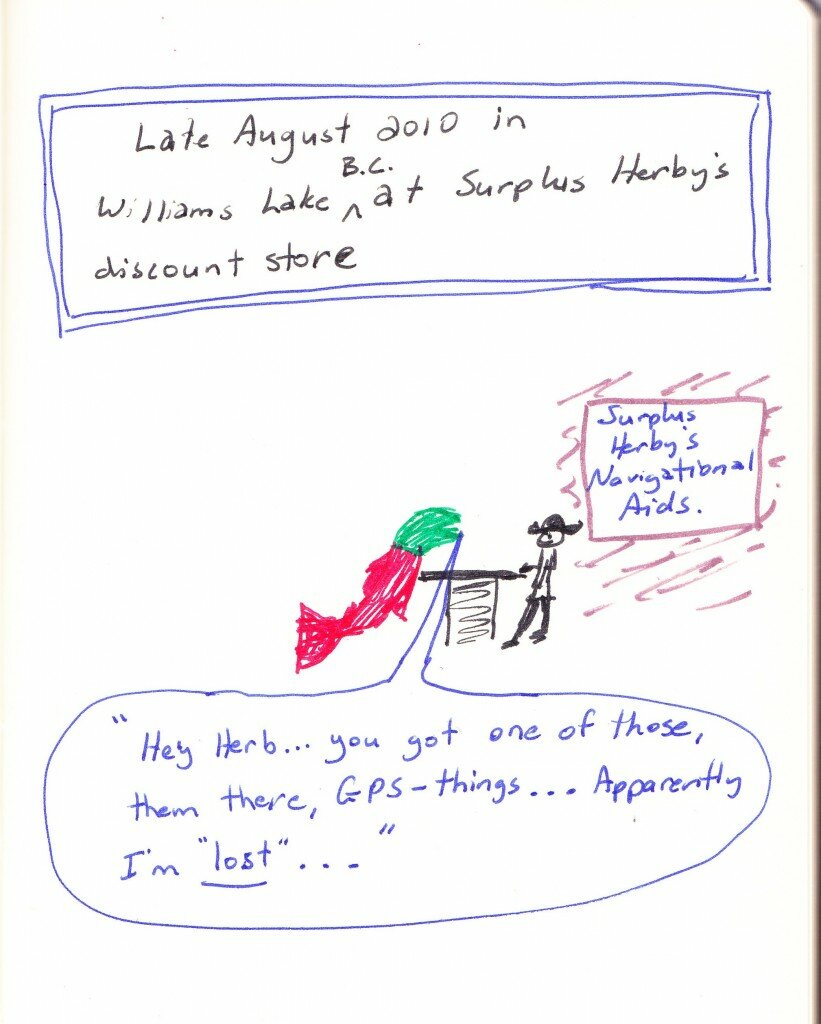 Late August 2010 in
B.C.
Williams Lake ^ at Surplus Herby's
discount store
Surplus
Herby's
Navigational
Aids.
"Hey Herb... you got one of those,
them there, GPS-things... Apparently
I'm "lost"... "